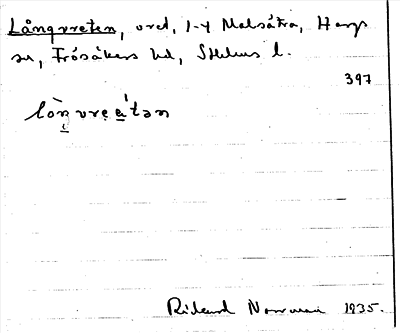 Långvreten, vret, 1-4 Malsätra, Hargs
sn, Frösåkers hd, Sthlms l.
397
lòŋvre̜átən
Rikard Norrman 1935.